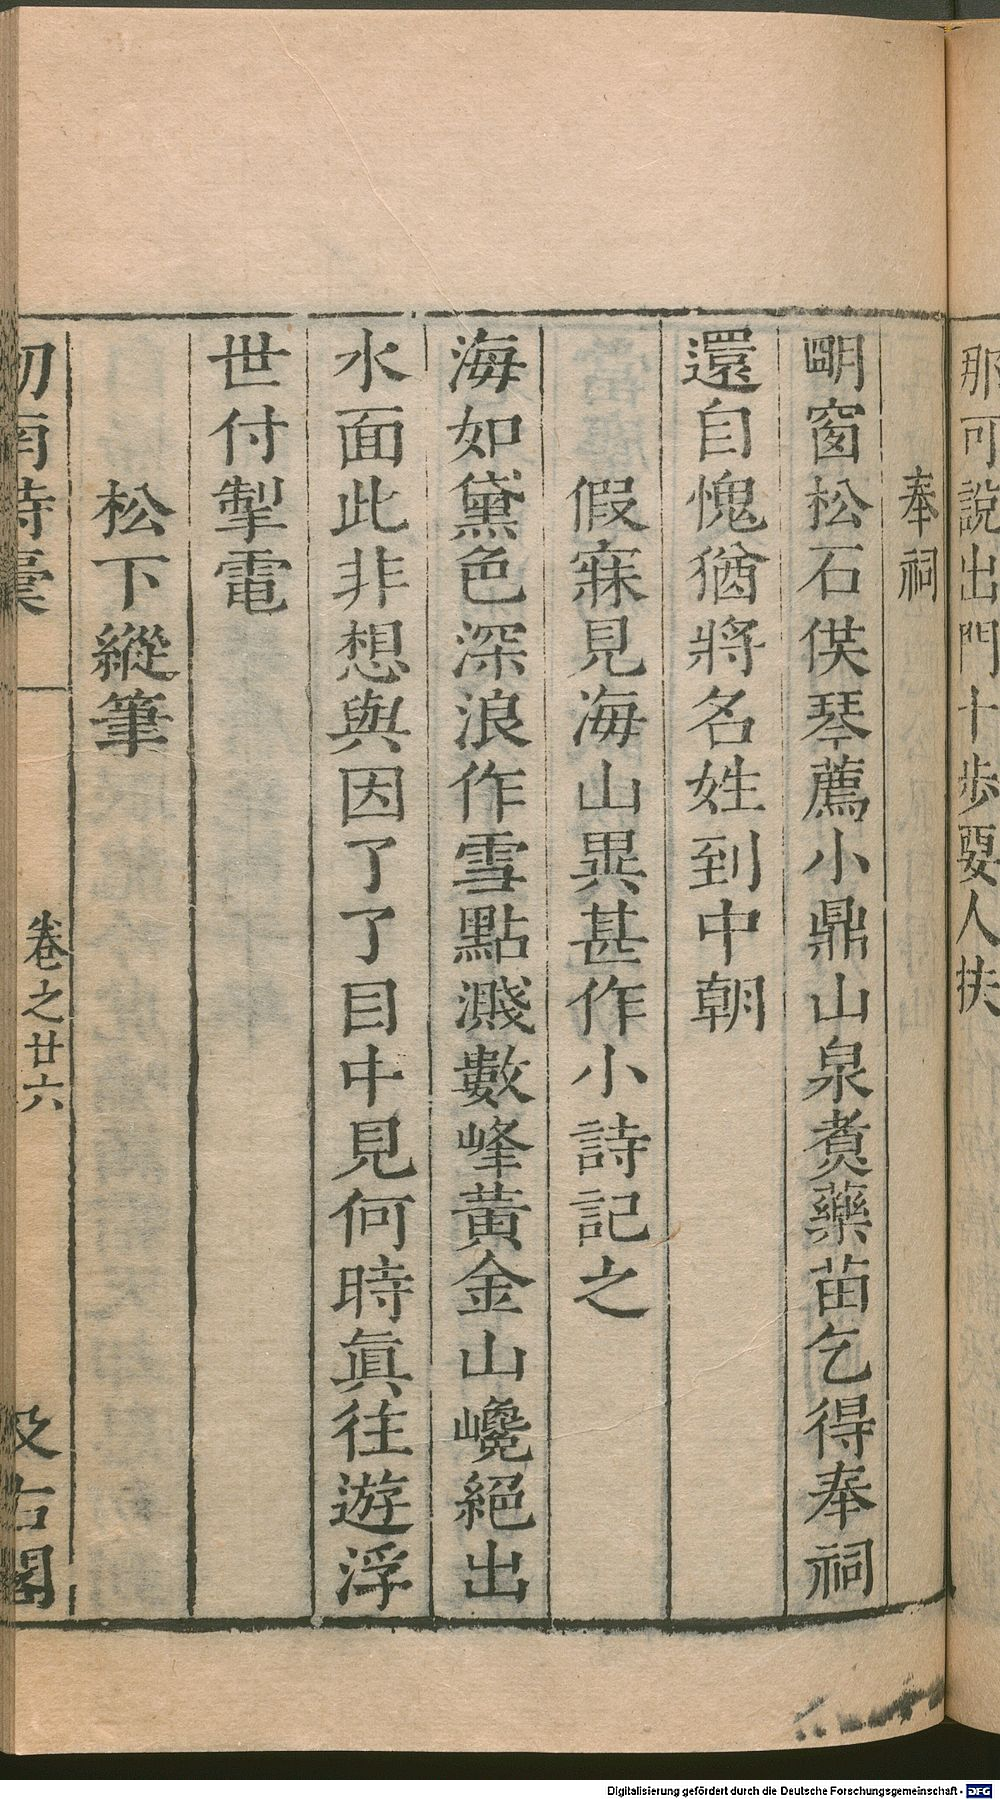 那可說出門十步要人扶
奉祠
明窗松石供琴薦小鼎山泉煑藥苗乞得奉祠
還自愧猶將名姓到中朝
假寐見海山異甚作小詩記之
海如黛色深浪作雪點濺數峰黃金山巉絕出
水面此非想與因了了目中見何時眞往遊浮
世付掣電
松下縱筆
劒南詩稾
卷之廿六
汲古閣
Digitalisierung gefördert durch die Deutsche Forschungsgemeinschaft - DFG